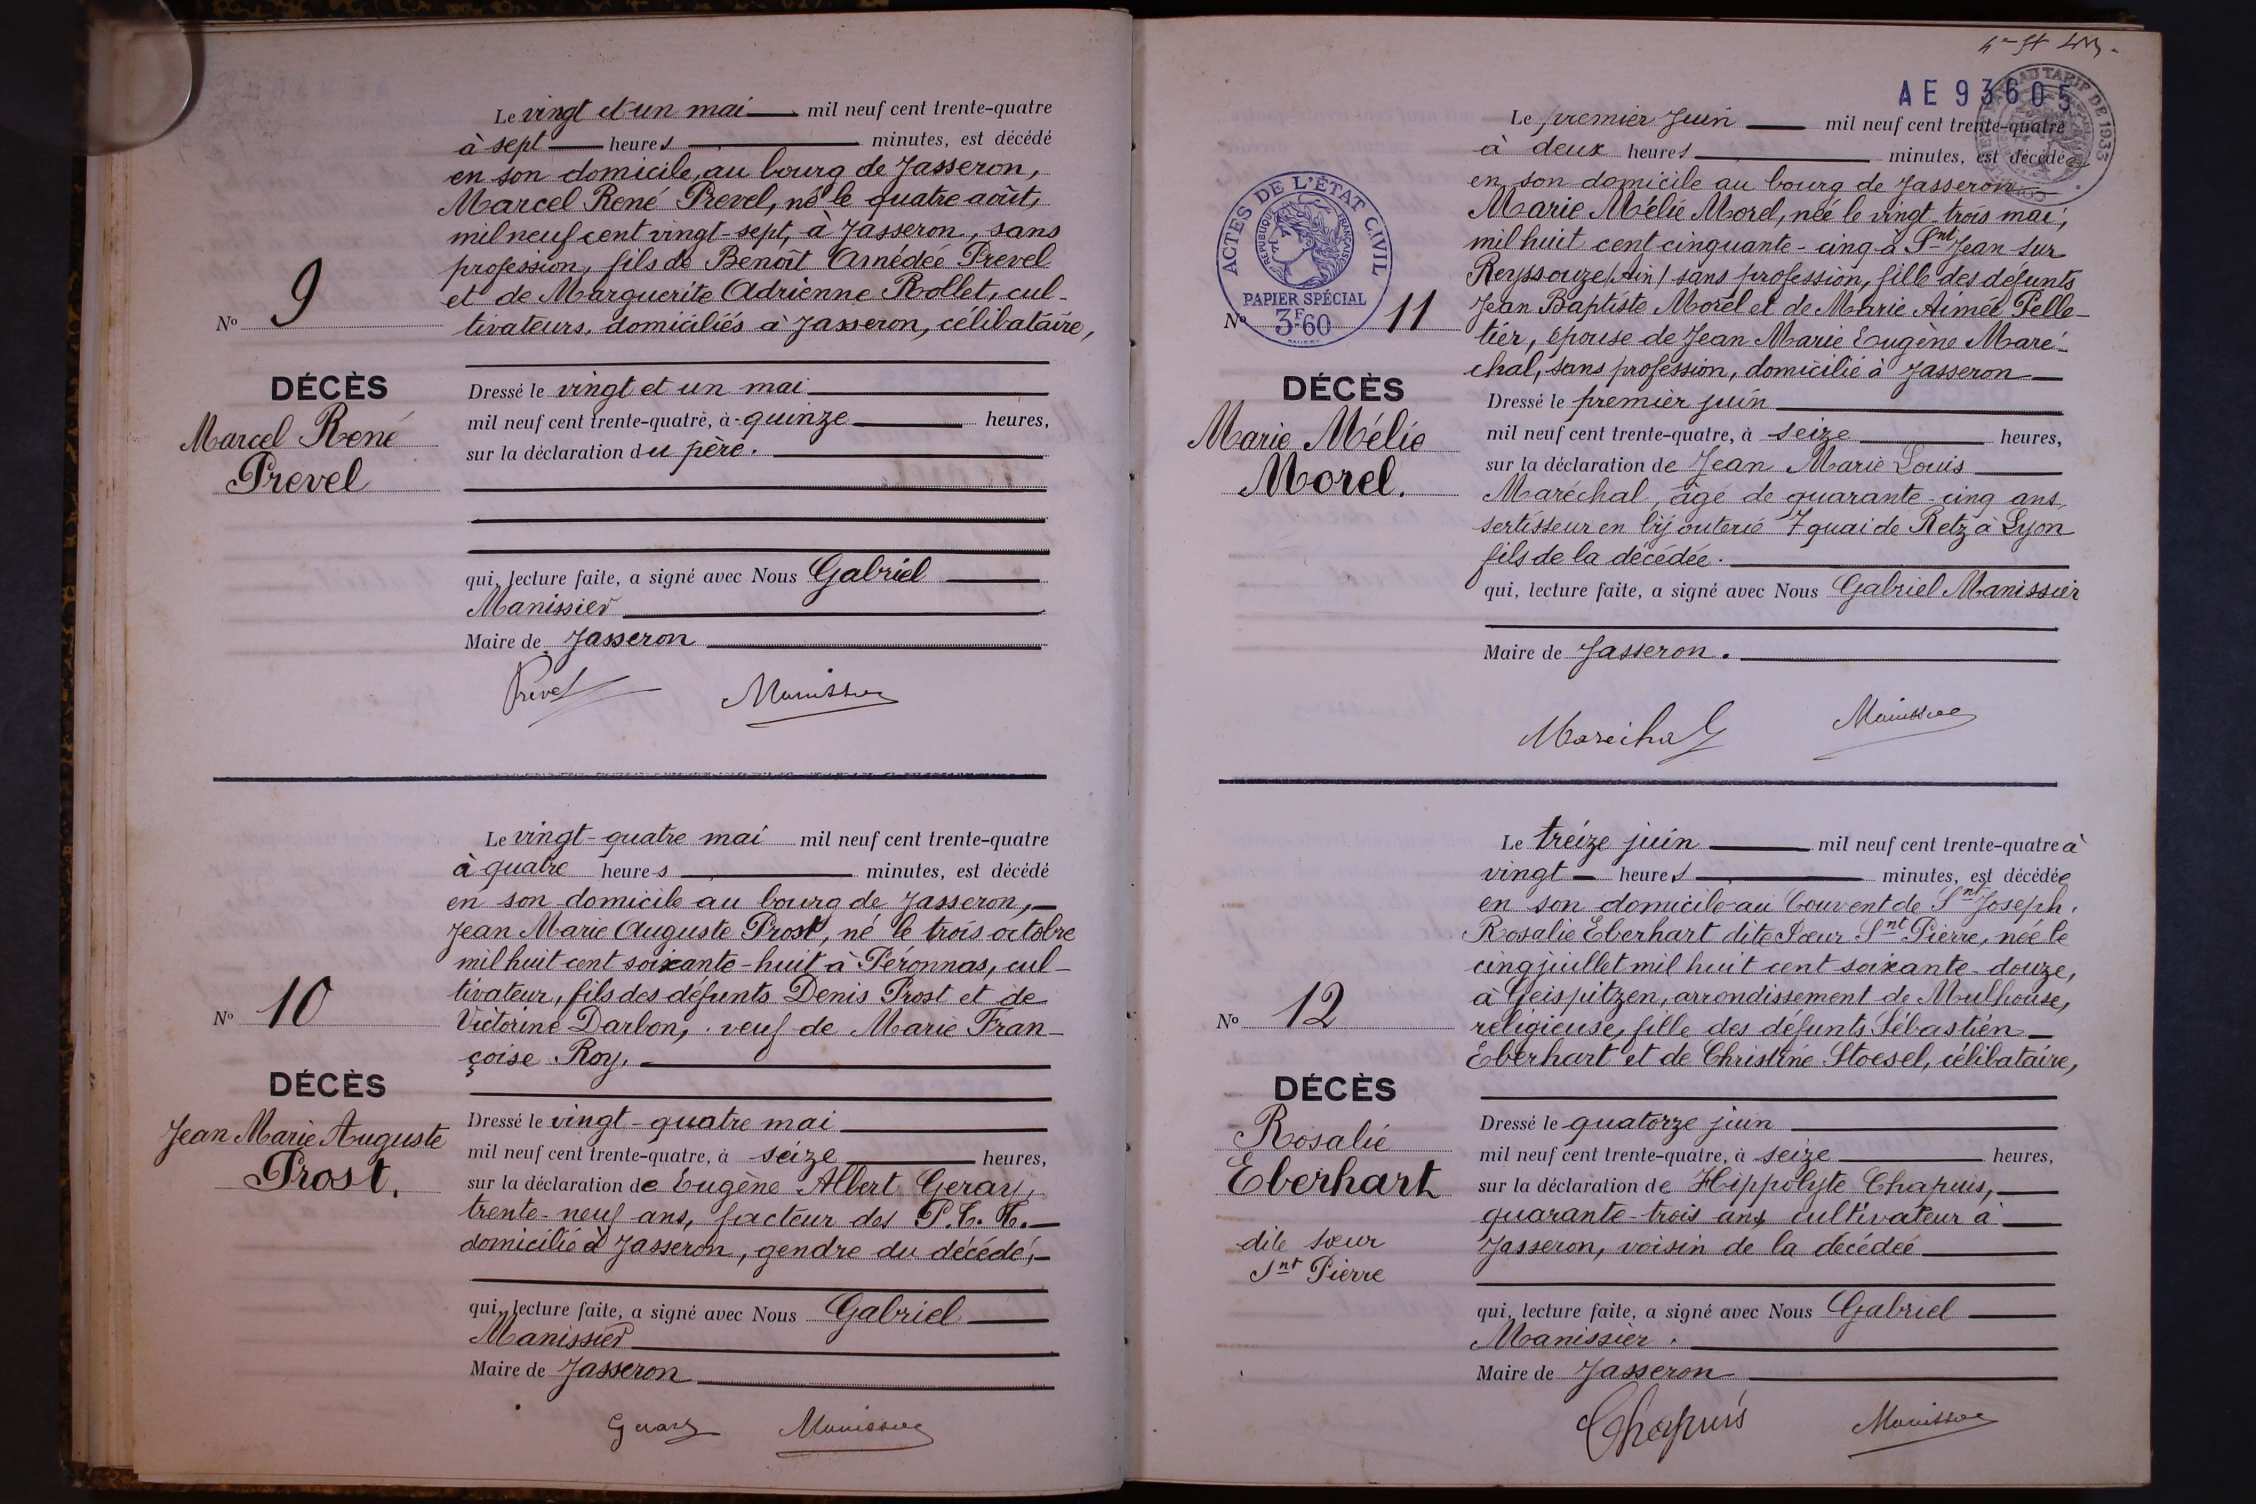 Le vingt et un mai mil neuf cent trente-quatre
à sept heures minutes, est décédé
en son domicile, au bourg de Jasseron,
Marcel René Prevel, né le quatre août,
mil neuf cent vingt-sept, à Jasseron, sans
profession, fils de Benoît Amédée Prevel
et de Marguerite Adrienne Rollet, cul-
tivateurs, domiciliés à Jasseron, célibataire,
No 9
DÉCÈS
Marcel René
Prevel
Dressé le vingt et un mai
mil neuf cent trente-quatre, à quinze heures,
sur la déclaration du père.
qui, lecture faite, a signé avec Nous Gabriel
Manissier
Maire de Jasseron
Prevel Manissier
Le vingt-quatre mai mil neuf cent trente-quatre
à quatre heures minutes, est décédé
en son domicile au bourg de Jasseron,
Jean Marie Auguste Prost, né le trois octobre
mil huit cent soixante-huit à Péronnas, cul-
tivateur, fils des défunts Denis Prost et de
Victorine Darbon, veuf de Marie Fran-
çoise Roy,
No 10
DÉCÈS
Jean Marie Auguste
Prost.
Dressé le vingt-quatre mai
mil neuf cent trente-quatre, à seize heures,
sur la déclaration de Eugène Albert Geray,
trente-neuf ans, facteur des P.T.T.
domicilié à Jasseron, gendre du décédé,
qui, lecture faite, a signé avec Nous Gabriel
Manissier
Maire de Jasseron
Geray Manissier
AE 93605
AU TARIF DE 1933
Le premier Juin mil neuf cent trente-quatre
à deux heures minutes, est décédée
en son domicile au bourg de Jasseron
Marie Mélie Morel, née le vingt-trois mai,
mil huit cent cinquante-cinq à Snt Jean sur
Reyssouze (Ain) sans profession, fille des defunts
Jean Baptiste Morel et de Marie Aimée Pelle-
tier, épouse de Jean Marie Eugène Maré-
chal, sans profession, domicilié à Jasseron
ACTES DE L'ÉTAT CIVIL
RÉPUBLIQUE FRANÇAISE
PAPIER SPÉCIAL
3F60
No 11
DÉCÈS
Marie Mélie
Morel.
Dressé le premier juin
mil neuf cent trente-quatre, à seize heures,
sur la déclaration de Jean Marie Louis
Maréchal, âgé de quarante-cinq ans,
sertisseur en bijouterie 7 quai de Retz à Lyon
fils de la décédée.
qui, lecture faite, a signé avec Nous Gabriel Manissier
Maire de Jasseron.
Marechal Manissier
Le treize juin mil neuf cent trente-quatre à
vingt heures minutes, est décédée
en son domicile au Couvent de Snt Joseph.
Rosalie Eberhart dite Sœur Snt Pierre, née le
cinq juillet mil huit cent soixante-douze,
à Geispitzen, arrondissement de Mulhouse,
religieuse, fille des défunts Sébastien
Eberhart et de Christine Stoesel, célibataire,
No 12
DÉCÈS
Rosalie
Eberhart
dite sœur
Snt Pierre
Dressé le quatorze juin
mil neuf cent trente-quatre, à seize heures,
sur la déclaration de Hippolyte Chapuis,
quarante-trois ans, cultivateur à
Jasseron, voisin de la décédée
qui, lecture faite, a signé avec Nous Gabriel
Manissier.
Maire de Jasseron
Chapuis Manissier